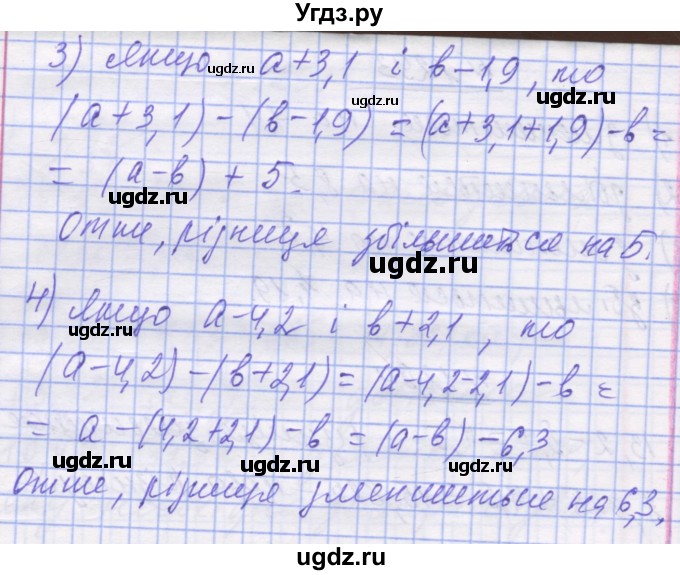 Угдз.ру
3) Якщо а+3,1 і в-1,9, то
(а+3,1)-(в-1,9)=(а+3,1+1,9)-в=
= (а-в)+5.
Отже, різниця збільшиться на 5.
4) Якщо а-4,2 і в+2,1, то
(а-4,2)-(в+2,1)=(а-4,2-2,1)-в=
= а-(4,2+2,1)-в=(а-в)-6,3
Отже, різниця зменшиться на 6,3,
ugdz.ru
ugdz.ru
ugdz.ru
ugdz.ru
ugdz.ru
ugdz.ru
ugdz.ru
ugdz.ru
ugdz.ru
ugdz.ru